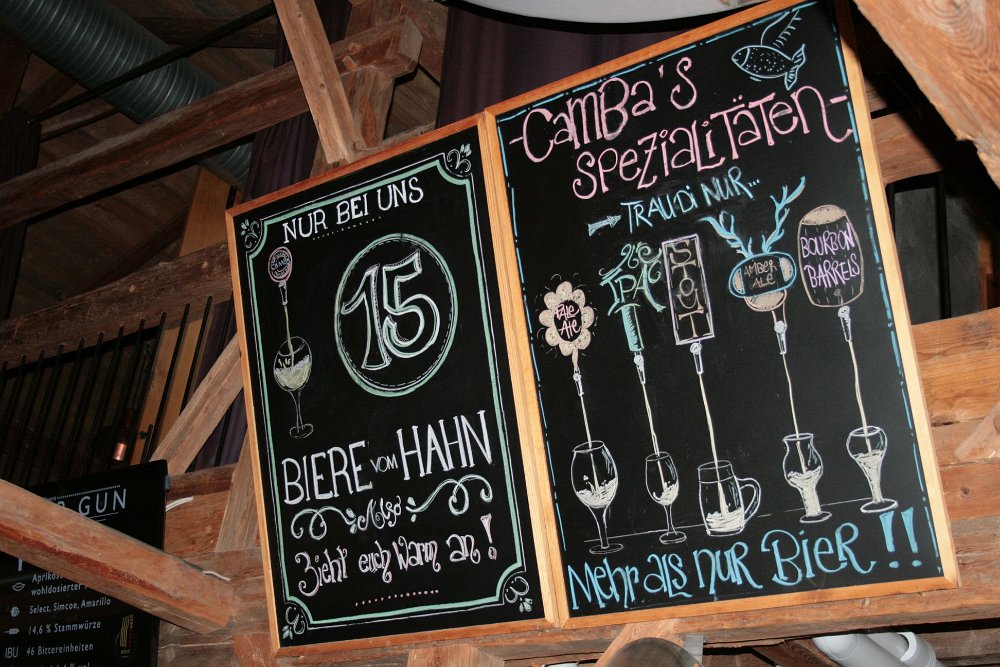 NUR BEI UNS
15
BIERE VOM HAHN
Also
Zieht euch Warm an!
-CAMBA'S
SPEZIALITÄTEN-
TRAU DI NUR...
PALE
ALE
IPA
STOUT
AMBER
ALE
BOURBON
BARRELS
Mehr als nur Bier!!
GUN
wohldosierter
Select, Simcoe, Amarillo
14,6 % Stammwürze
IBU 46 Bittereinheiten